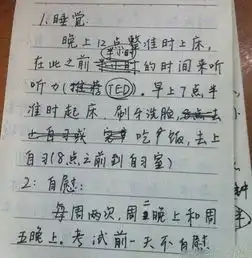 1. 睡觉:
晚上12点整准时上床,
半小时
在此之前的时间来听
听力(推荐TED)。早上7点半
准时起床,刷牙洗脸,
吃饭,去上
自习(8点之前到自习室)
2: 自慰:
每周两次,周二晚上和周
五晚上。考试前一天不自慰